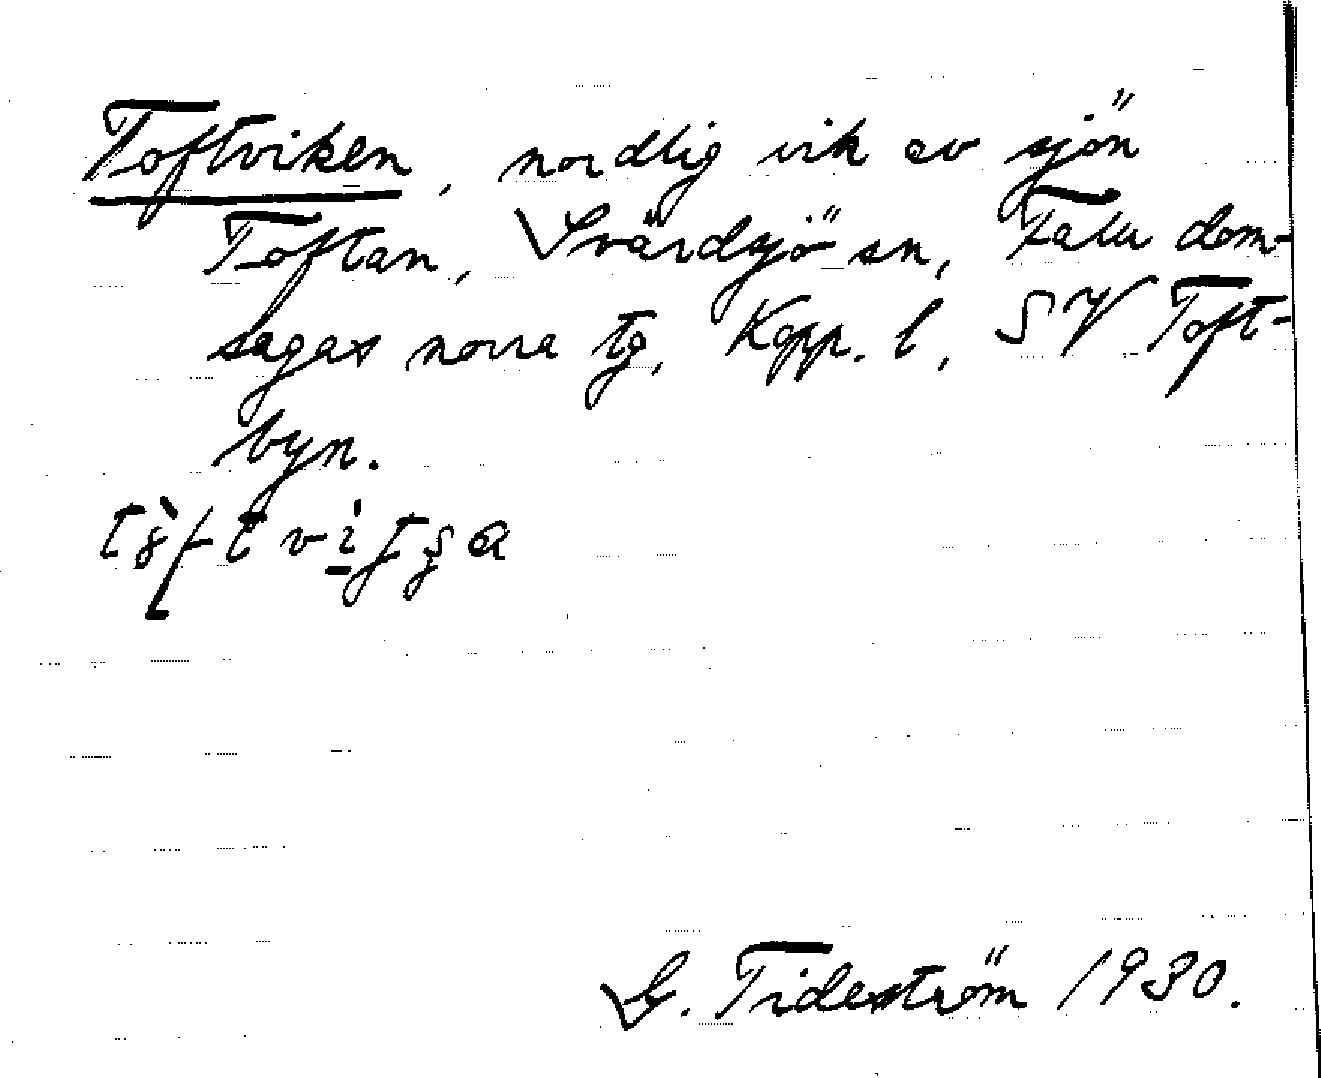 Toftviken, nordlig vik av sjön
Toftan, Svärdsjö sn, Falu dom-
sagas norra tg, Kopp. l, SV Toft-
byn.
G. Tideström 1930.